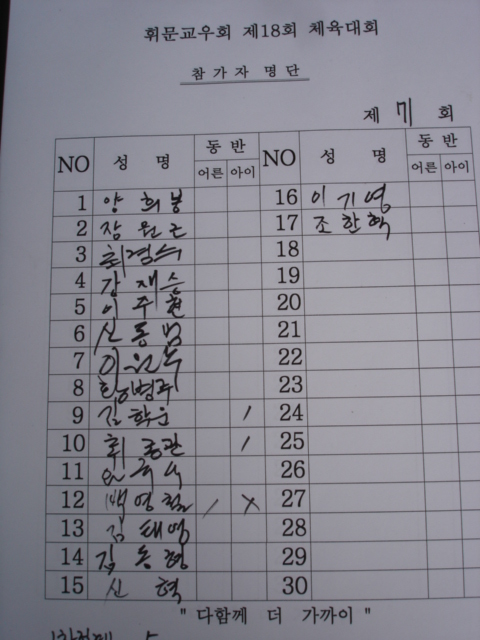 휘문교우회 제18회 체육대회
참가자 명단
제 71 회
NO 성 명 동 반 NO 성 명 동 반
어른 아이 어른 아이
1 양 희 봉 16 이 기 영
2 장 원 근 17 조 한 혁
3 최경수 18
4 강 재 승 19
5 이 주 헌 20
6 신 동 범 21
7 22
8 23
9 김 학 운 / 24
10 관 / 25
11 26
12 백 영 철 / X 27
13 김 태 영 28
14 김 동 형 29
15 신 혁 30
" 다함께 더 가까이 "